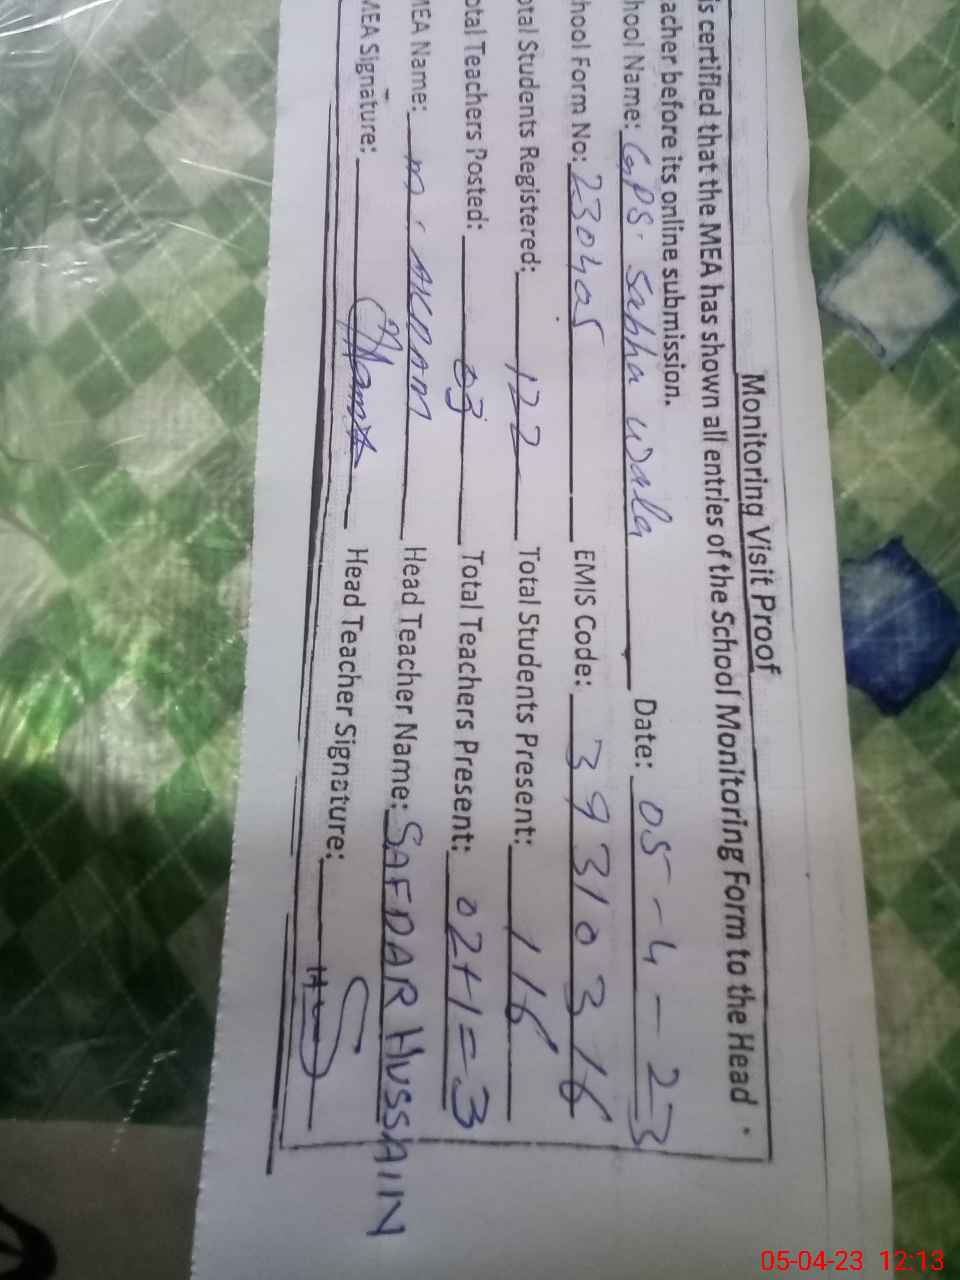 Monitoring Visit Proof
is certified that the MEA has shown all entries of the School Monitoring Form to the Head
acher before its online submission.
hool Name: GPS. Sabhu wala Date: 05-4-23
hool Form No: 230405 EMIS Code: 39310316
otal Students Registered: 122 Total Students Present: 116
otal Teachers Posted: 03 Total Teachers Present: 02+1=3
MEA Name: M. AKRAM Head Teacher Name: SAFDAR HUSSAIN
MEA Signature: Head Teacher Signature:
05-04-23 12:13